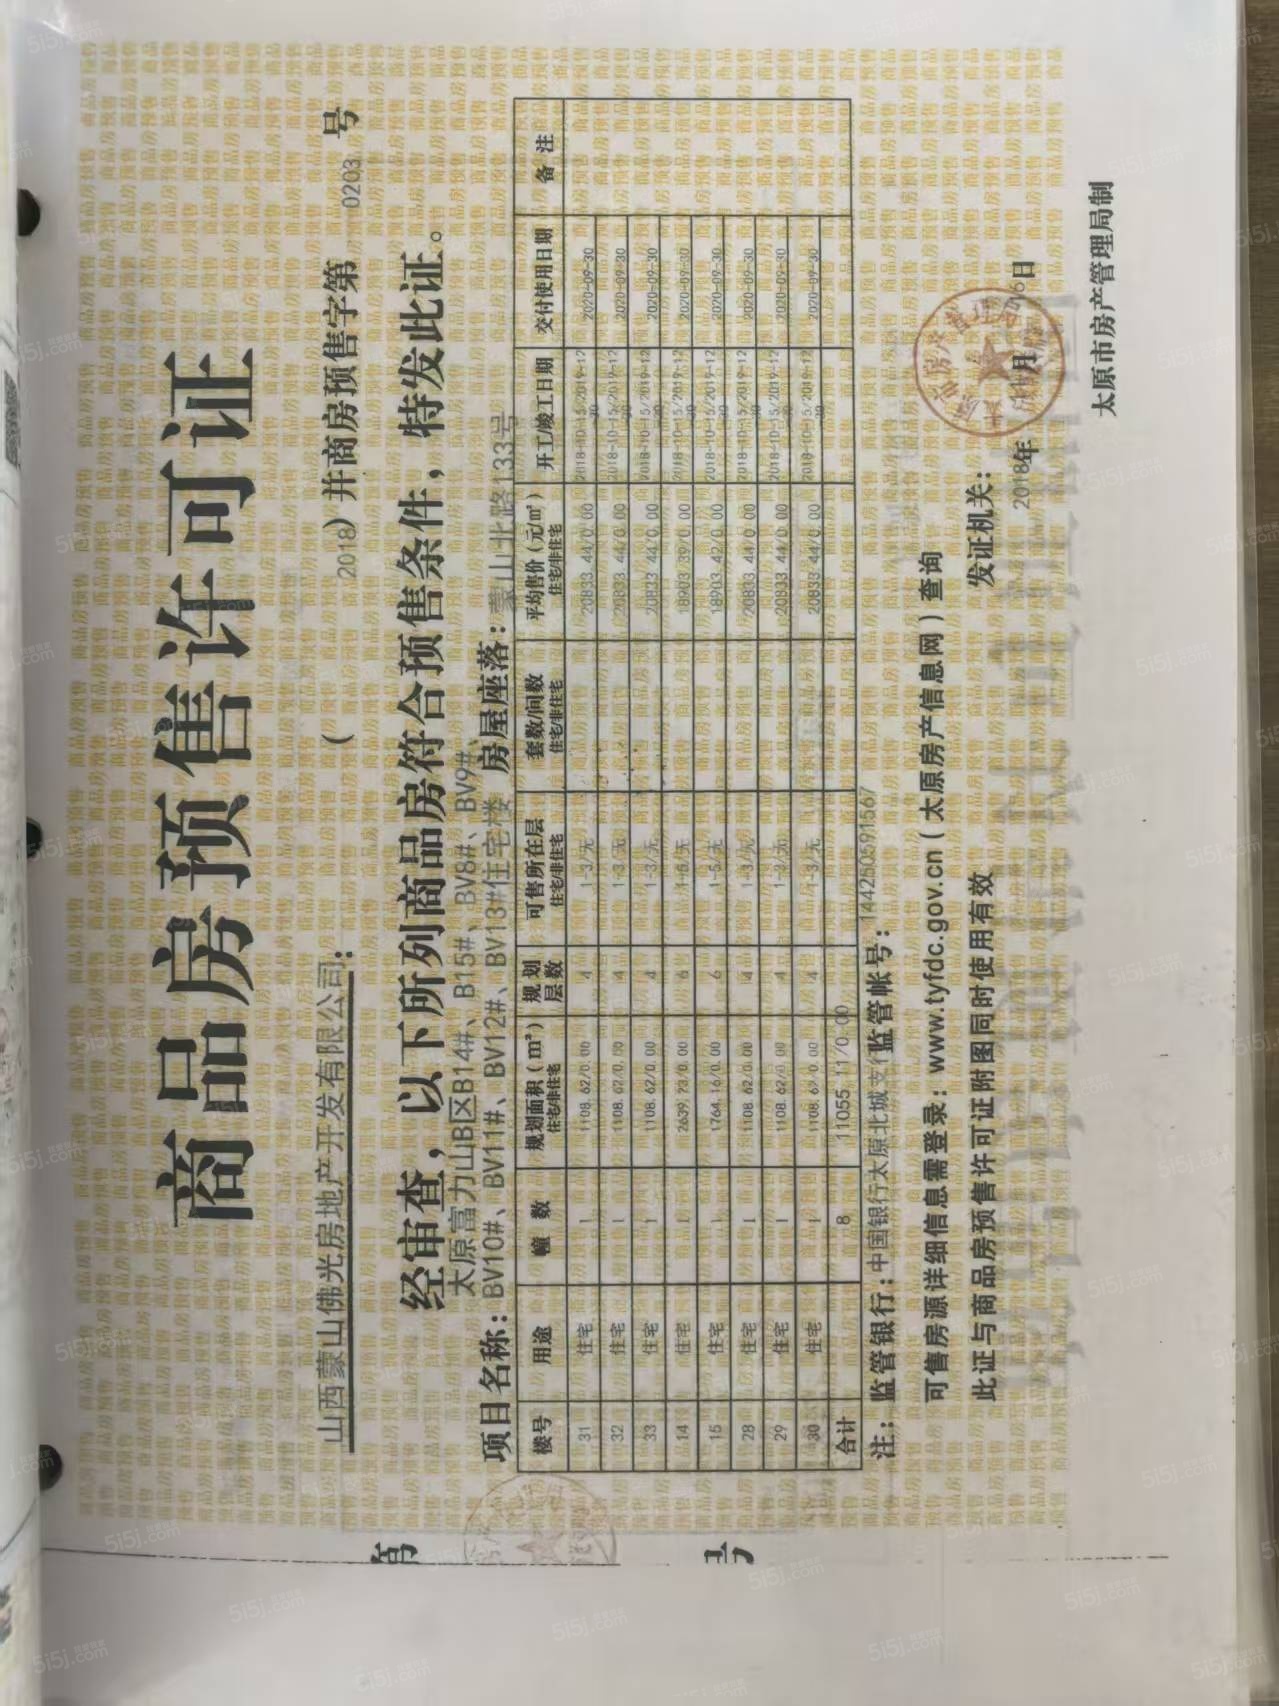 商品房预售许可证
（ 2018）并商房预售字第 0203 号
山西蒙山佛光房地产开发有限公司：
经审查，以下所列商品房符合预售条件，特发此证。
太原富力山B区B14#、B15#、BV8#、BV9#、
项目名称：BV10#、BV11#、BV12#、BV13#住宅楼 房屋座落：蒙山北路133号
楼号 用途 幢 数 规划面积（m²）住宅/非住宅 规划层数 可售所在层 住宅/非住宅 套数/间数 住宅/非住宅 平均售价（元/m²）住宅/非住宅 开工/竣工日期 交付使用日期 备 注
31 住宅 1 1108.62/0.00 4 1-3/无 20833.44/0.00 2018-10-15/2019-12-30 2020-09-30
32 住宅 1 1108.62/0.00 4 1-3/无 20833.44/0.00 2018-10-15/2019-12-30 2020-09-30
33 住宅 1 1108.62/0.00 4 1-3/无 20833.44/0.00 2018-10-15/2019-12-30 2020-09-30
14 住宅 1 2639.23/0.00 6 18903.39/0.00 2018-10-15/2019-12-30 2020-09-30
15 住宅 1 1764.16/0.00 6 18903.42/0.00 2018-10-15/2019-12-30 2020-09-30
28 住宅 1 1108.62/0.00 4 1-3/无 20833.44/0.00 2018-10-15/2019-12-30 2020-09-30
29 住宅 1 1108.62/0.00 4 1-3/无 20833.44/0.00 2018-10-15/2019-12-30 2020-09-30
30 住宅 1 1108.62/0.00 4 1-3/无 20833.44/0.00 2018-10-15/2019-12-30 2020-09-30
合计 8 11055.11/0.00
注：监管银行：中国银行太原北城支行 监管帐号：144250591567
可售房源详细信息需登录：www.tyfdc.gov.cn（太原房产信息网）查询
此证与商品房预售许可证附图同时使用有效
发证机关：
2018年 月 日
太原市房产管理局制
第
号